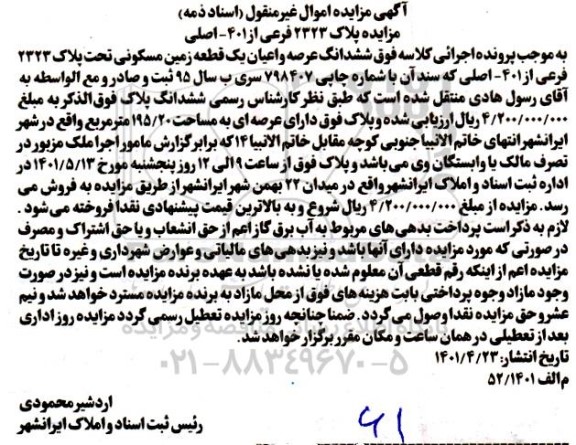 آگهی مزایده اموال غیرمنقول (اسناد ذمه)
مزایده پلاک ۲۳۲۳ فرعی از ۴۰۱- اصلی
به موجب پرونده اجرائی کلاسه فوق ششدانگ عرصه واعیان یک قطعه زمین مسکونی تحت پلاک ۲۳۲۳
فرعی از ۴۰۱- اصلی که سند آن با شماره چاپی ۷۹۸۴۰۷ سری ب سال ۹۵ ثبت و صادر و مع الواسطه به
آقای رسول هادی منتقل شده است که طبق نظر کارشناس رسمی ششدانگ پلاک فوق الذکر به مبلغ
۴/۲۰۰/۰۰۰/۰۰۰ ریال ارزیابی شده و پلاک فوق دارای عرصه ای به مساحت ۱۹۵/۲۰ مترمربع واقع در شهر
ایرانشهر انتهای خاتم الانبیا جنوبی کوچه مقابل خاتم الانبیا ۱۴ که برابر گزارش مامور اجرا ملک مزبور در
تصرف مالک یا وابستگان وی می باشد و پلاک فوق از ساعت ۹ الی ۱۲ روز پنجشنبه مورخ ۱۴۰۱/۵/۱۳ در
اداره ثبت اسناد و املاک ایرانشهر واقع در میدان ۲۲ بهمن شهر ایرانشهر از طریق مزایده به فروش می
رسد. مزایده از مبلغ ۴/۲۰۰/۰۰۰/۰۰۰ ریال شروع و به بالاترین قیمت پیشنهادی نقدا فروخته می شود.
لازم به ذکر است پرداخت بدهی های مربوط به آب برق گاز اعم از حق انشعاب و یا حق اشتراک و مصرف
در صورتی که مورد مزایده دارای آنها باشد و نیز بدهی های مالیاتی و عوارض شهرداری و غیره تا تاریخ
مزایده اعم از اینکه رقم قطعی آن معلوم شده یا نشده باشد به عهده برنده مزایده است و نیز در صورت
وجود مازاد وجوه پرداختی بابت هزینه های فوق از محل مازاد به برنده مزایده مسترد خواهد شد و نیم
عشر و حق مزایده نقدا وصول می گردد. ضمنا چنانچه روز مزایده تعطیل رسمی گردد مزایده روز اداری
بعد از تعطیلی در همان ساعت و مکان مقرر برگزار خواهد شد.
تاریخ انتشار: ۱۴۰۱/۴/۲۳
۰۲۱-۸۸۳۴۹۶۷۰-۵
م الف ۵۲/۱۴۰۱
اردشیر محمودی
رئیس ثبت اسناد و املاک ایرانشهر
۶۱